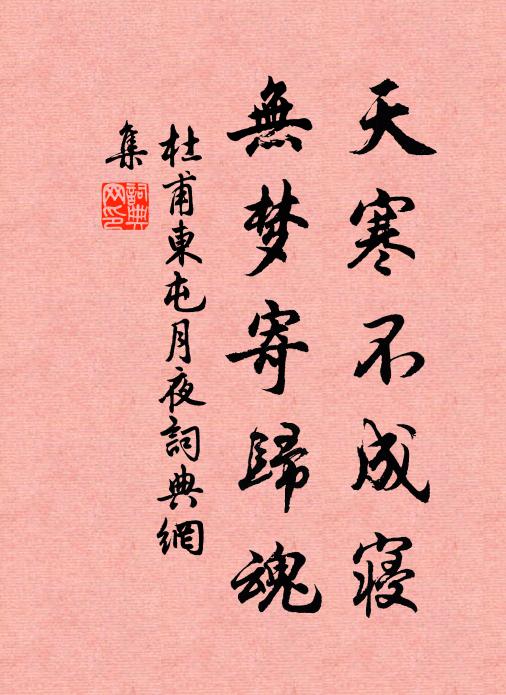 天寒不成寝
無梦寄歸魂
杜甫東屯月夜詞典網
集
詞典
网印